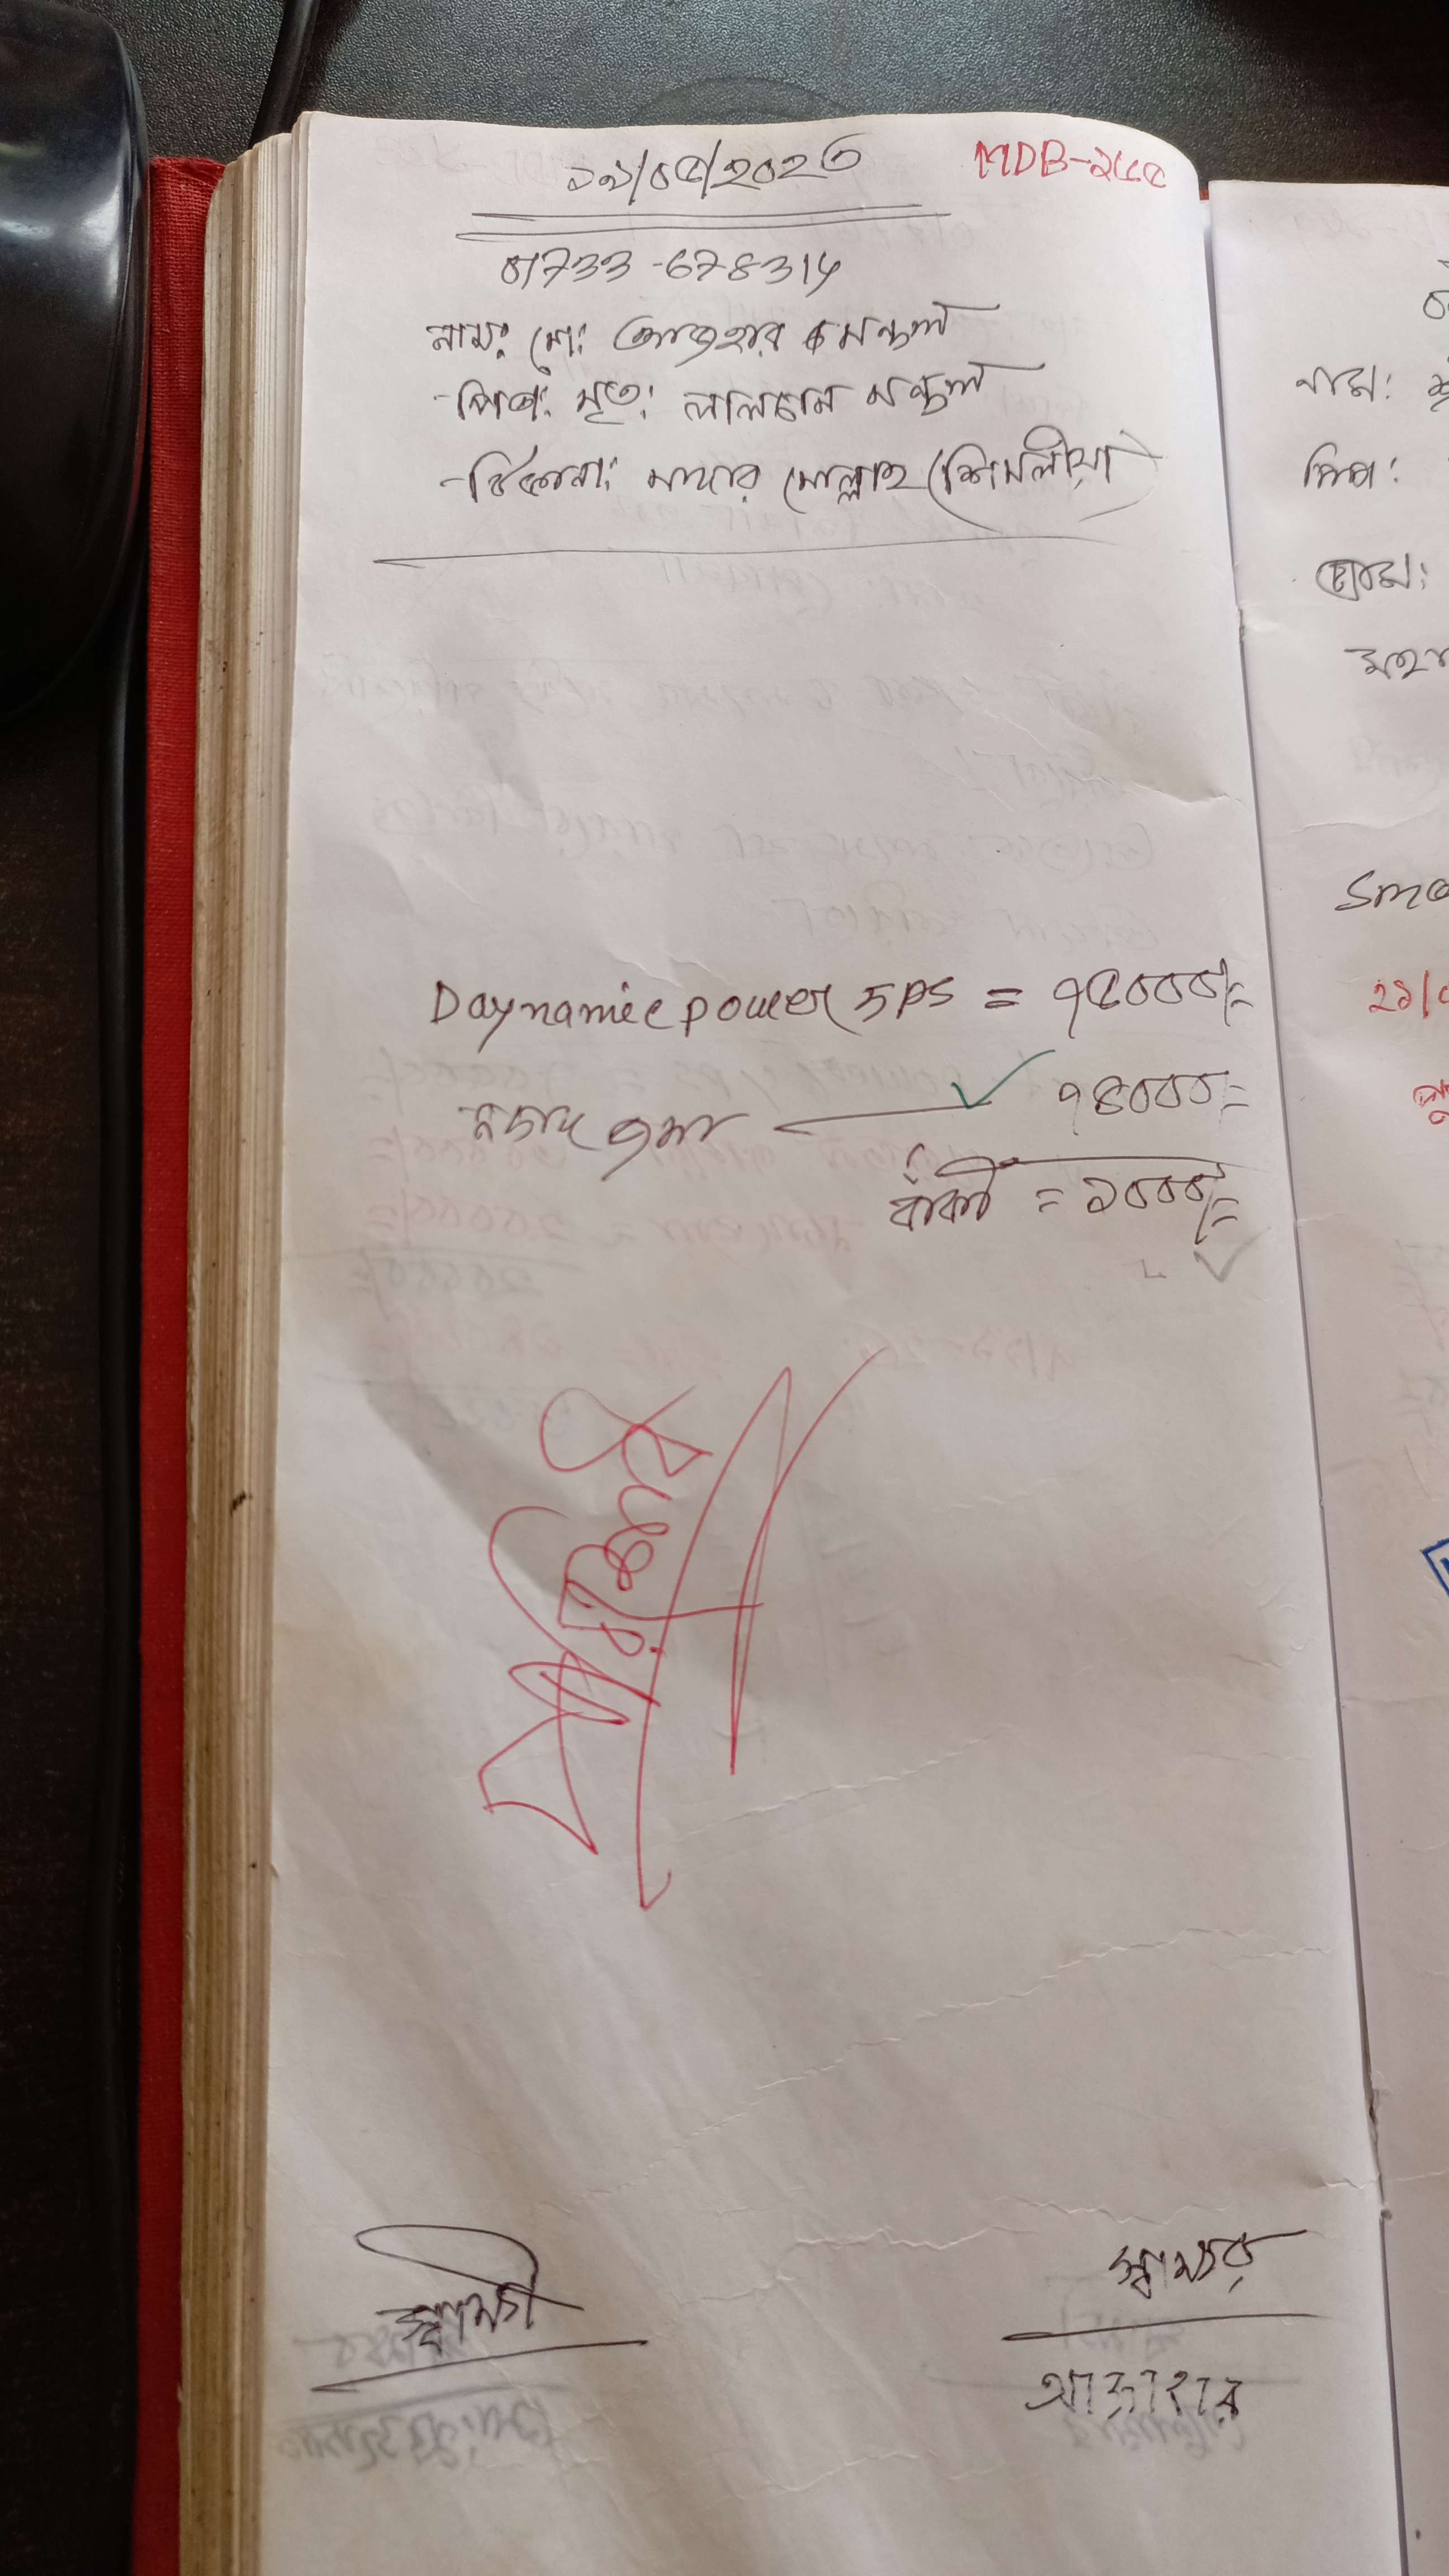 ১৯/০৫/২০২৩
MDB-২৫৫
01733-678314
নাম: মো: আজহার মন্ডল
পিতা: মৃত: লালচান মন্ডল
ঠিকানা: মাদার মোল্লাহ (শিমলীয়া)
Daynamic power 5ps = ৭৫০০০/=
নগদ জমা ৭৪০০০=
বাকী = ১০০০/=
পরিশোধ
স্বাক্ষী
স্বাক্ষর
আজাহার
নাম:
পিতা:
গ্রাম: